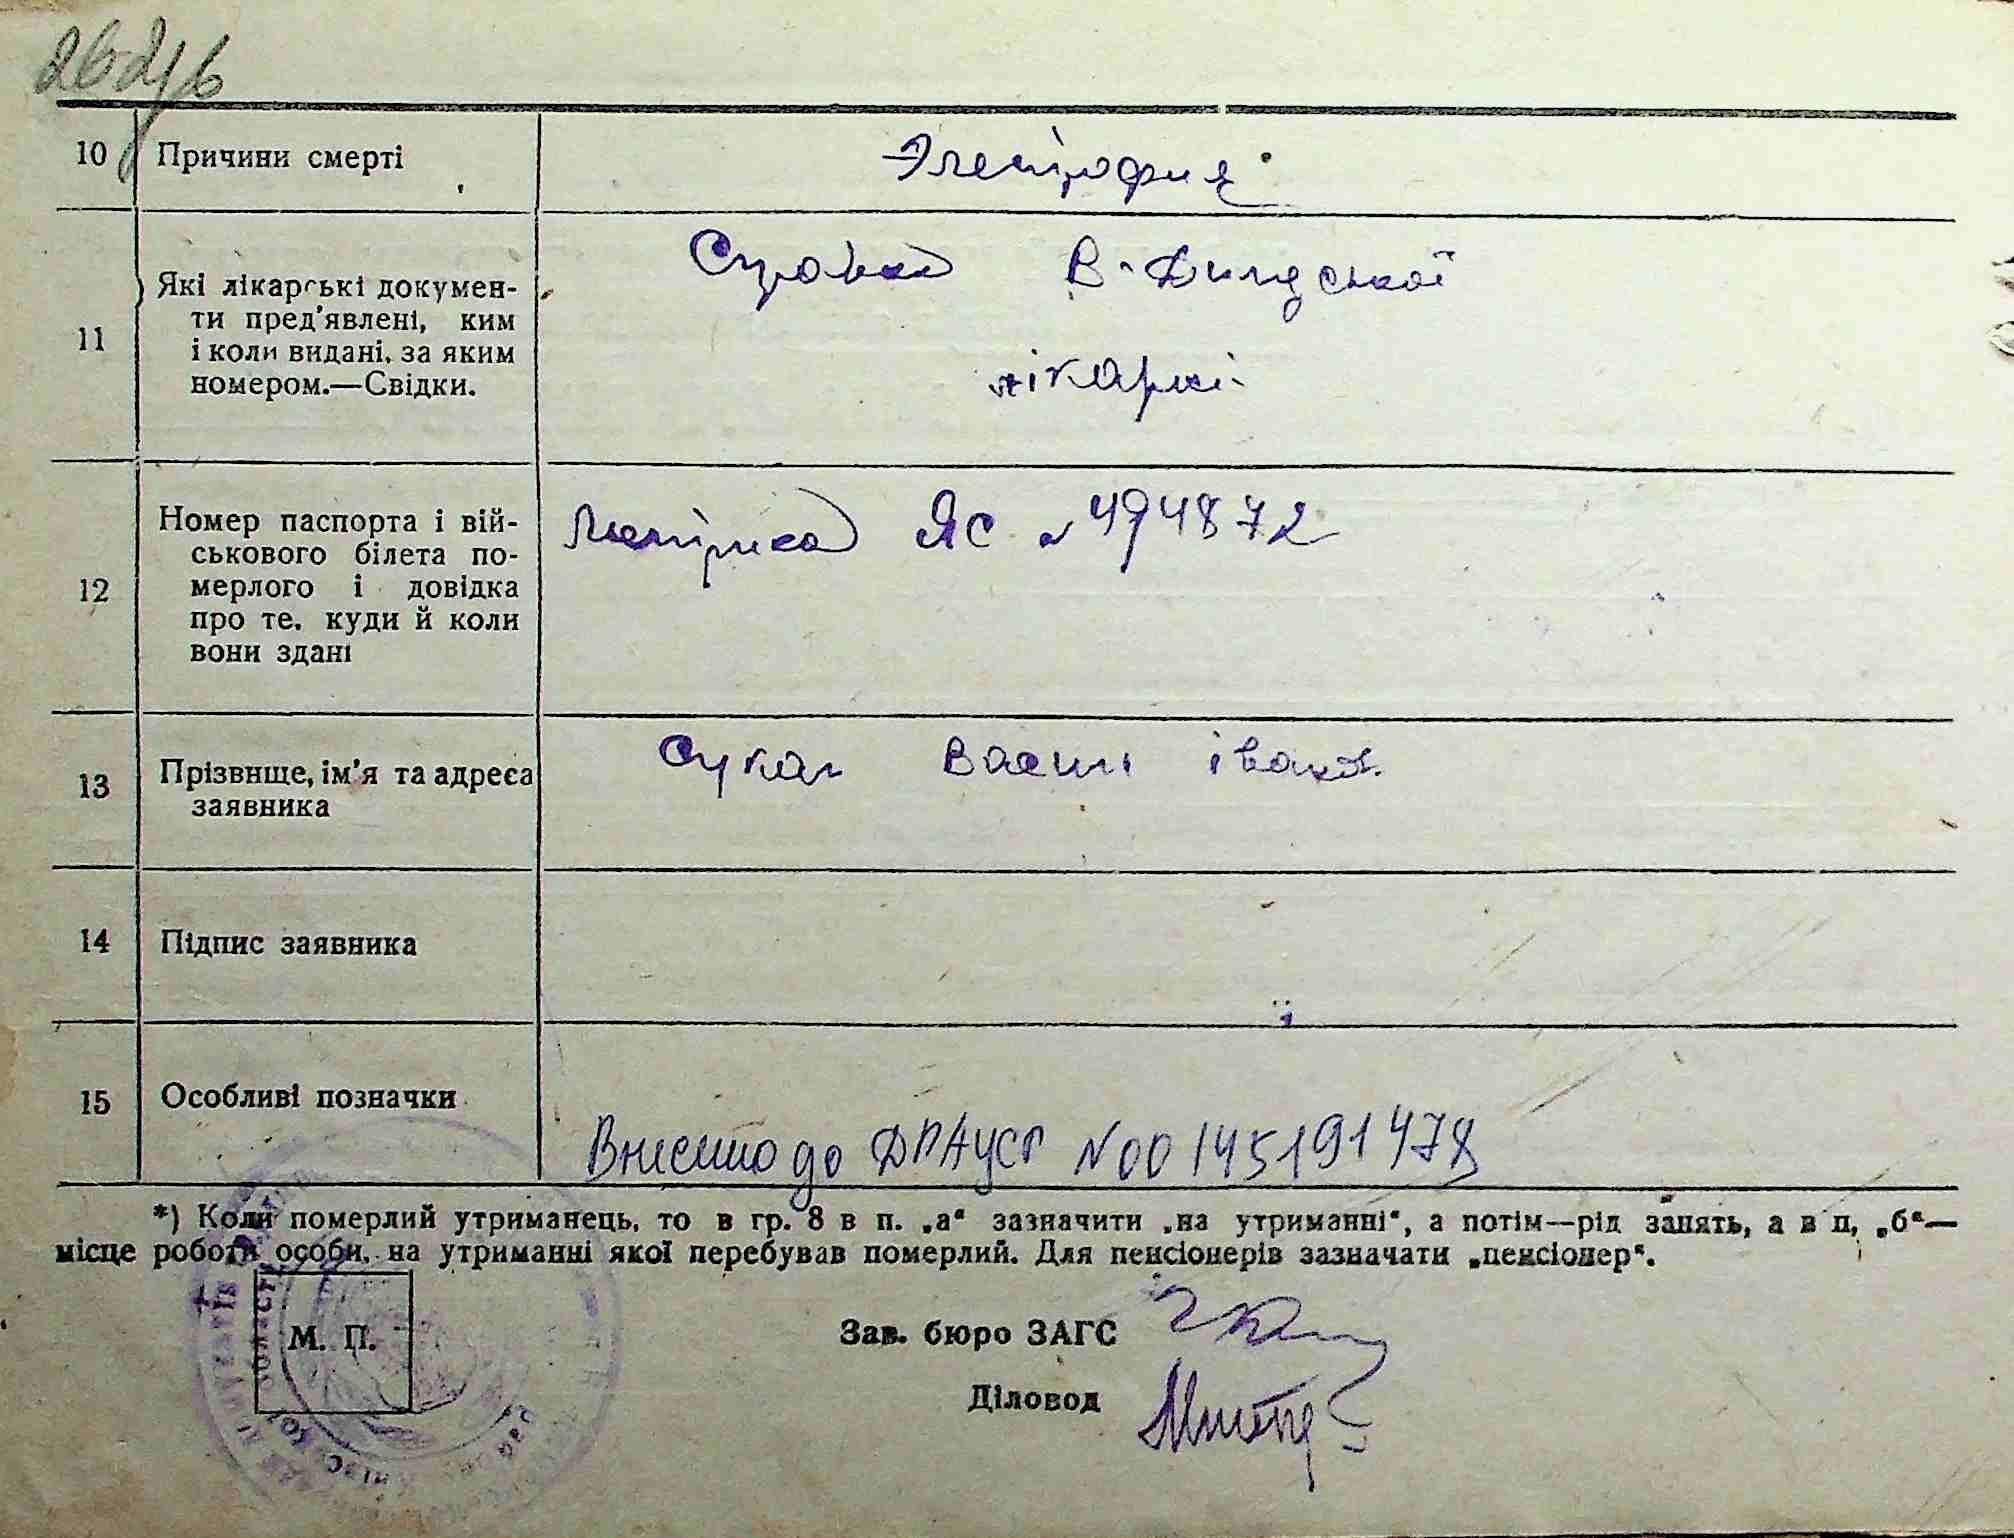 10 Причини смерті
Справка В-Дилдської
лікарні
11 Які лікарські докумен-
ти пред'явлені, ким
і коли видані, за яким
номером.—Свідки.
12 Номер паспорта і вій-
ськового білета по-
мерлого і довідка
про те, куди й коли
вони здані
Метрика ЯС № 494872
13 Прізвище, ім'я та адреса
заявника
Сукач Василь Іванов.
14 Підпис заявника
15 Особливі позначки
Внесено до ДРАЦСГ N00145191478
*) Коли померлий утриманець, то в гр. 8 в п. „а“ зазначити „на утриманні“, а потім—рід занять, а в п, „б“—
місце роботи особи, на утриманні якої перебував померлий. Для пенсіонерів зазначати „пенсіонер“.
М. П.
Зав. бюро ЗАГС
Діловод